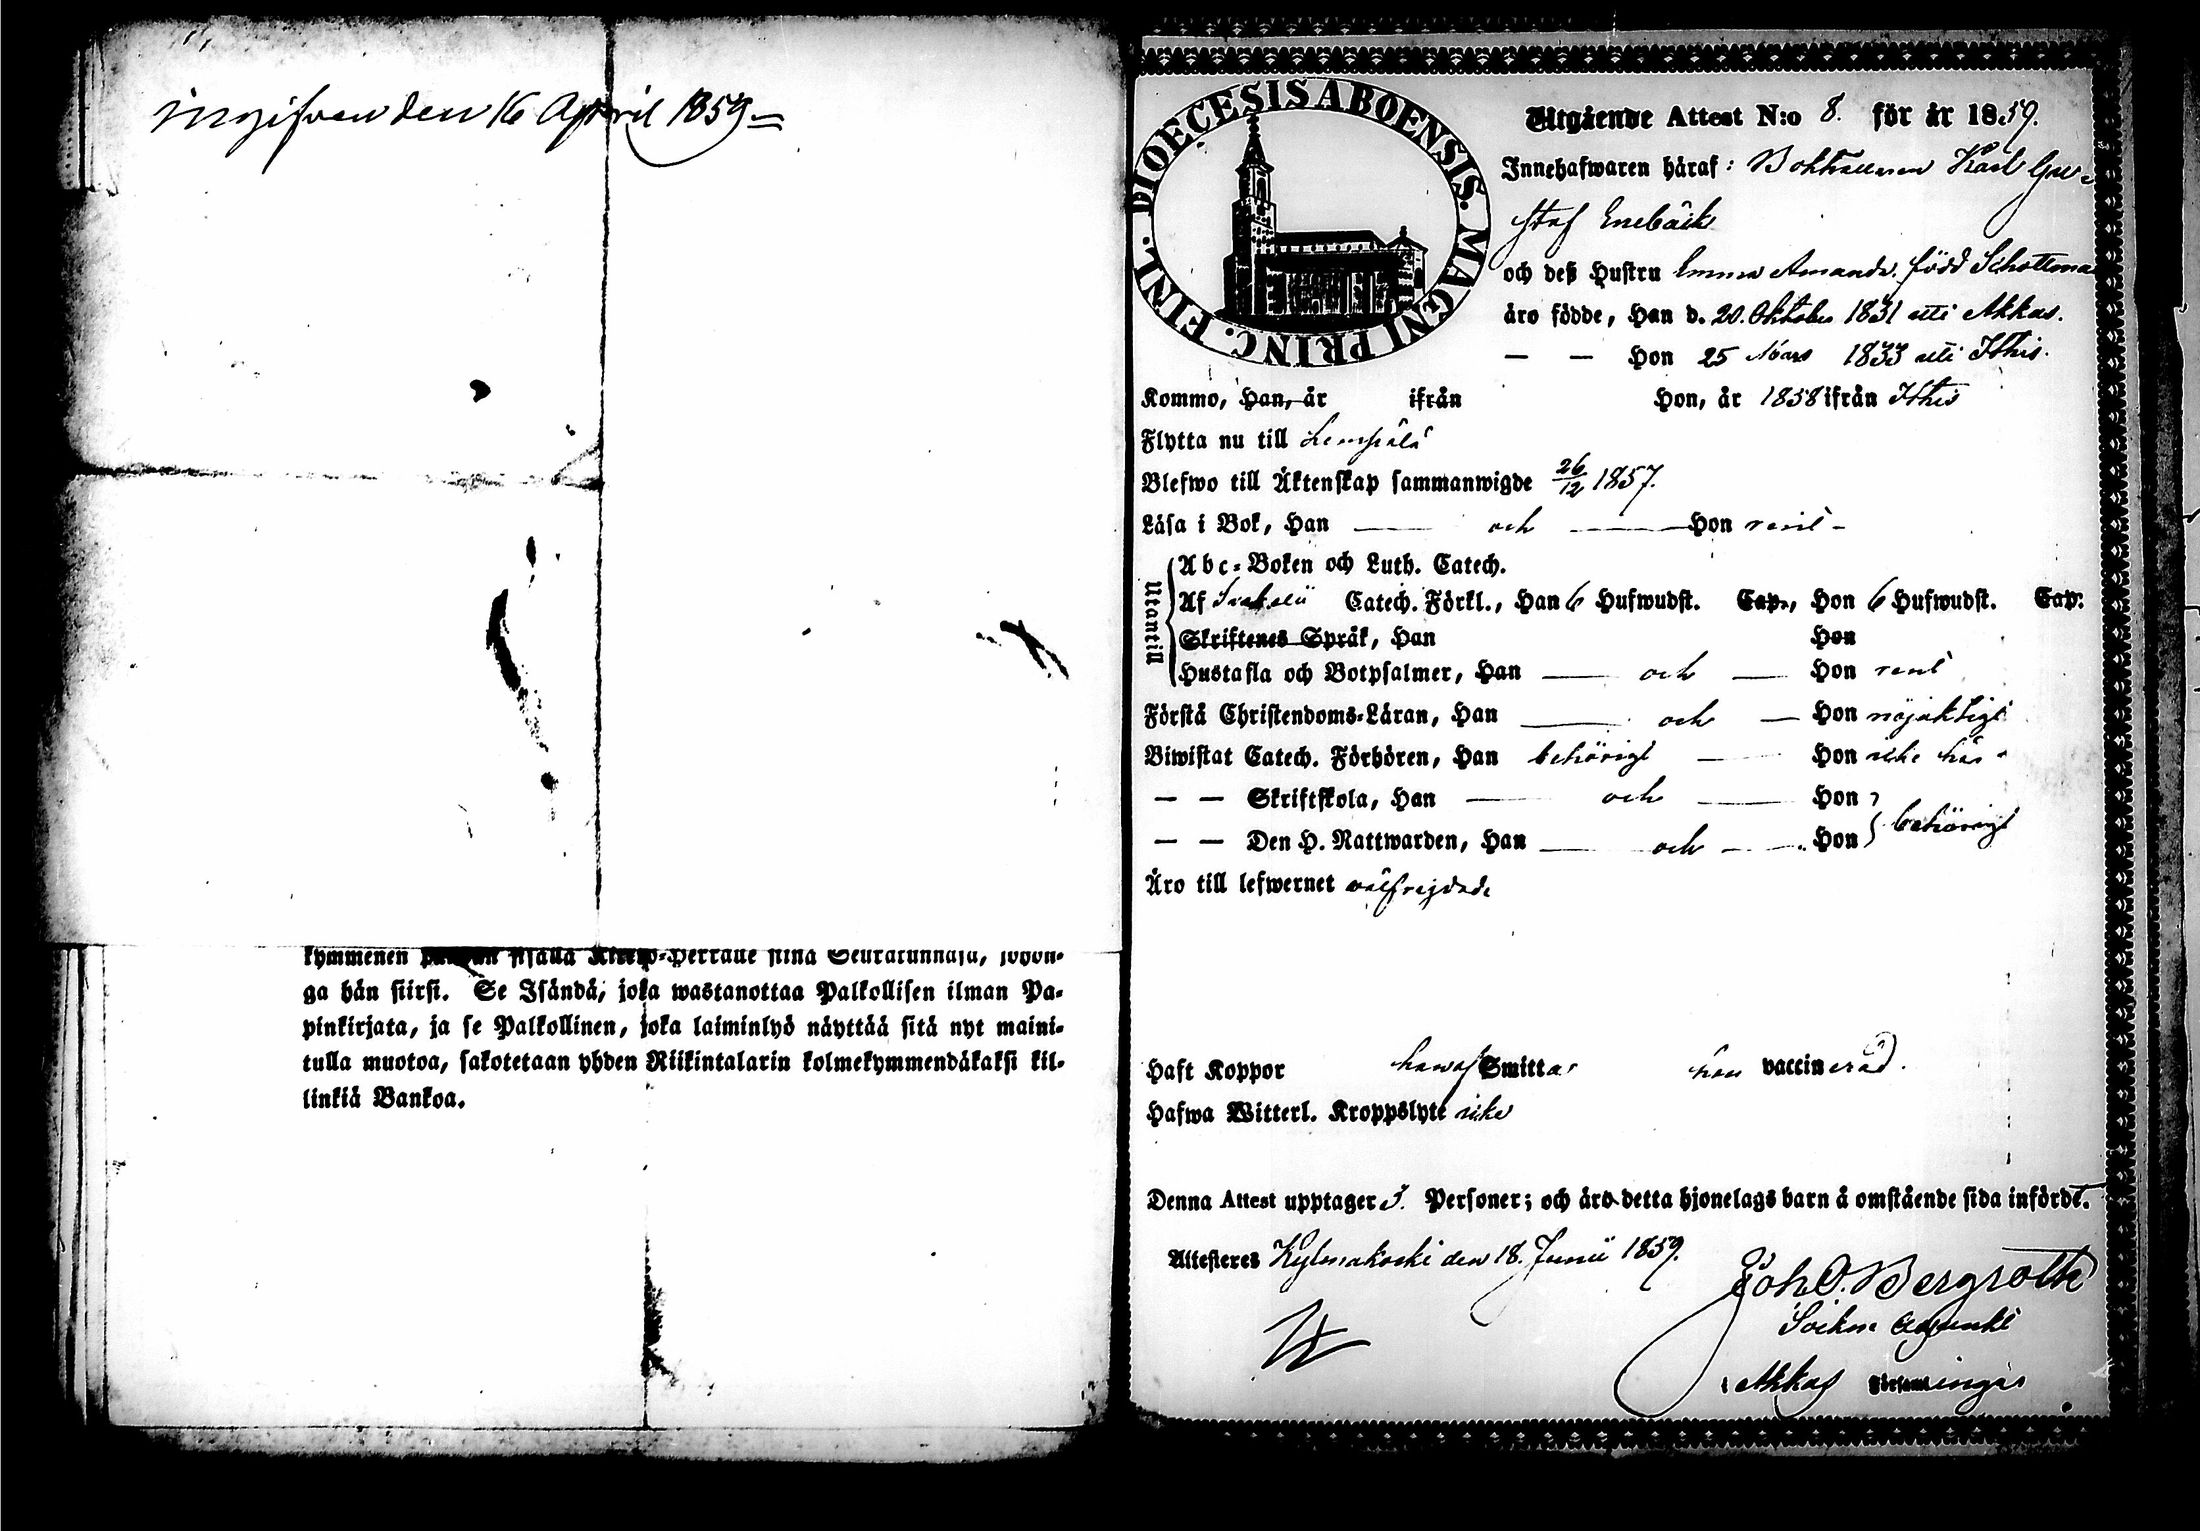 ingifven den 16 April 1859
kymmenen sisällä Kirkko-Herralle siinä Seurakunnasa, johon-
ga hän siirsi. Se Isändä, joka wastanottaa Palkollisen ilman Pa-
pinkirjata, ja se Palkollinen, joka laiminlyö näyttää sitä nyt maini-
tulla muotoa, sakotetaan yhden Riikintalarin kolmekymmendäkaksi kil-
lingiä Bankoa.
DIOECESIS ABOENSIS. MAGNI PRINC. FINL.
Utgående Attest N:o 8. för år 1859.
Innehafwaren häraf: Bokhållaren Karl Gu-
staf Enebäck
och deß Hustru Emma Amanda, född Schottma
äro födde, Han d. 20. Oktober 1831 uti Akkas.
— — Hon 25 Mars 1833 uti Ithis.
Kommo, Han, år ifrån Hon, år 1858 ifrån Ithis
Flytta nu till Lempälä
Blefwo till Äktenskap sammanwigde 26/12 1857.
Läsa i Bok, Han — och — Hon rent -
Utantill
Abc-Boken och Luth. Catech.
Af Catech. Förkl., Han 6 Hufwudst. Cap., Hon 6 Hufwudst. Cap.
Skriftenes Språk, Han Hon
Hustafla och Botpsalmer, Han — och — Hon rent
Förstå Christendoms-Läran, Han — och — Hon nöjaktigt
Biwistat Catech. Förhören, Han behörigt — Hon icke här
— — Skriftskola, Han — och — Hon
— — Den H. Nattwarden, Han — och — Hon behörigt
Äro till lefwernet välfrejdade
Haft Koppor Smittor hon vaccinerad.
Hafwa Witterl. Kroppslyte icke
Denna Attest upptager 3. Personer; och äro detta hjonelags barn å omstående sida införde.
Attesteres Kylmäkoski den 18. Junii 1859.
Joh O. Bergroth
Sockne Adjunkt
i Akkas Församlingar